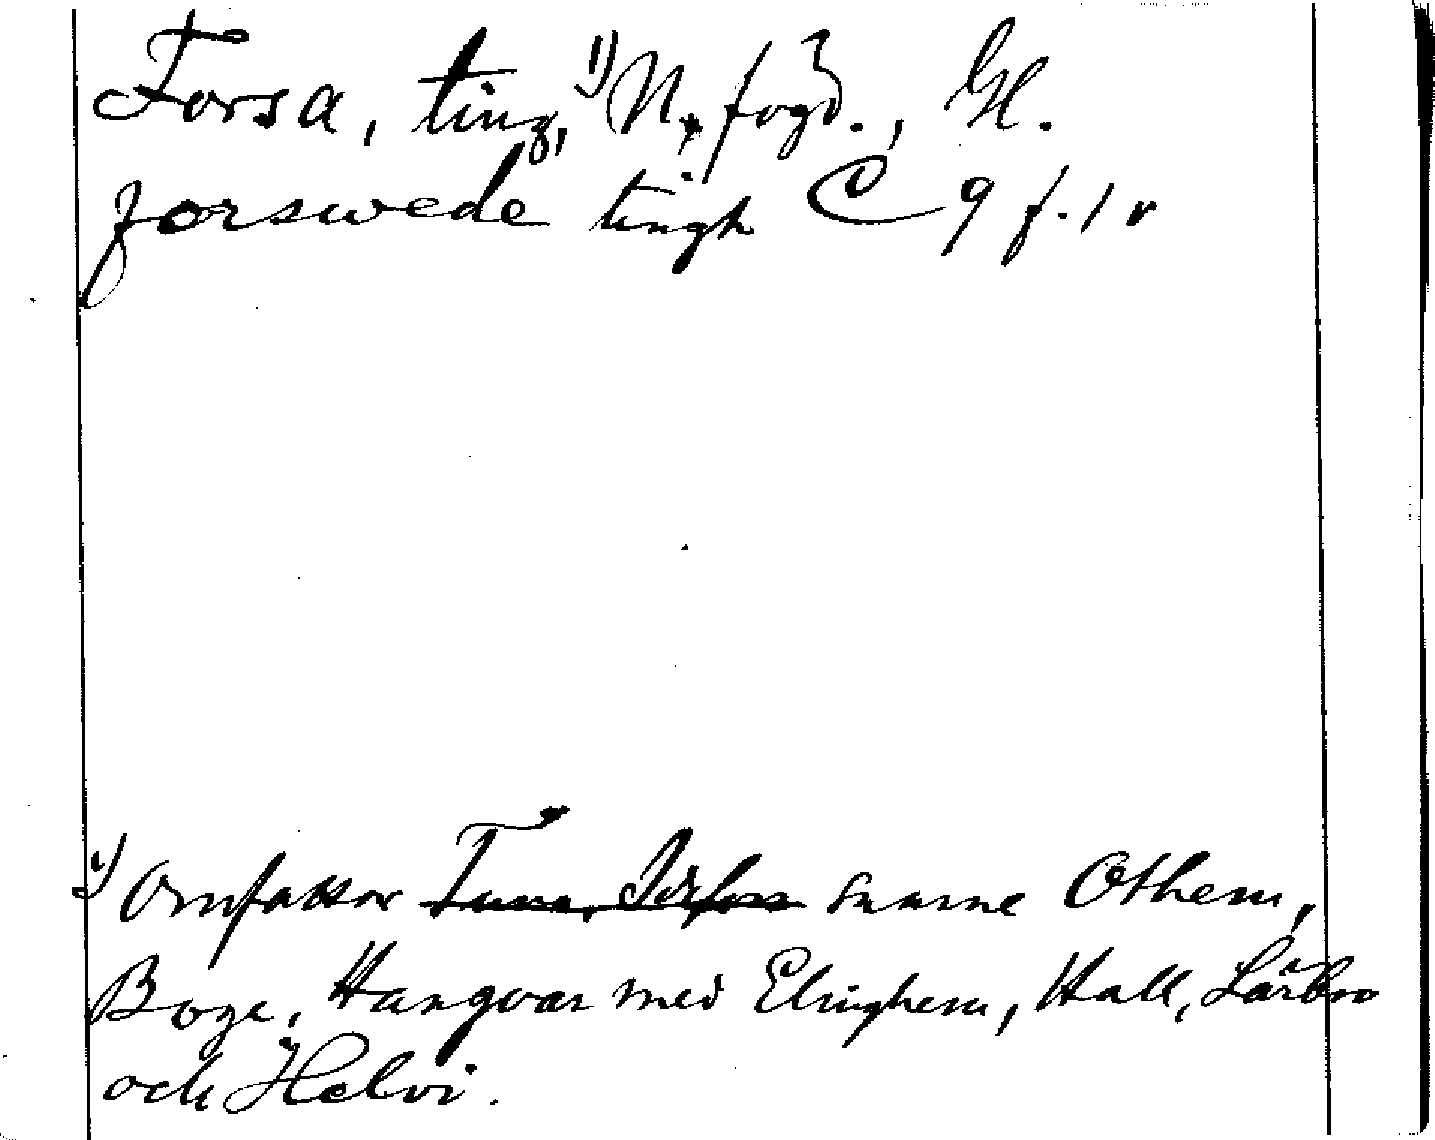 Forsa, ting,¹⁾ N. fögd., Gl.
forswede tingh C 9 f. 1 v
¹⁾ Omfattar socknarne Othem,
Boge, Hangvar med Elinghem, Hall, Lärbro
och Helvi.